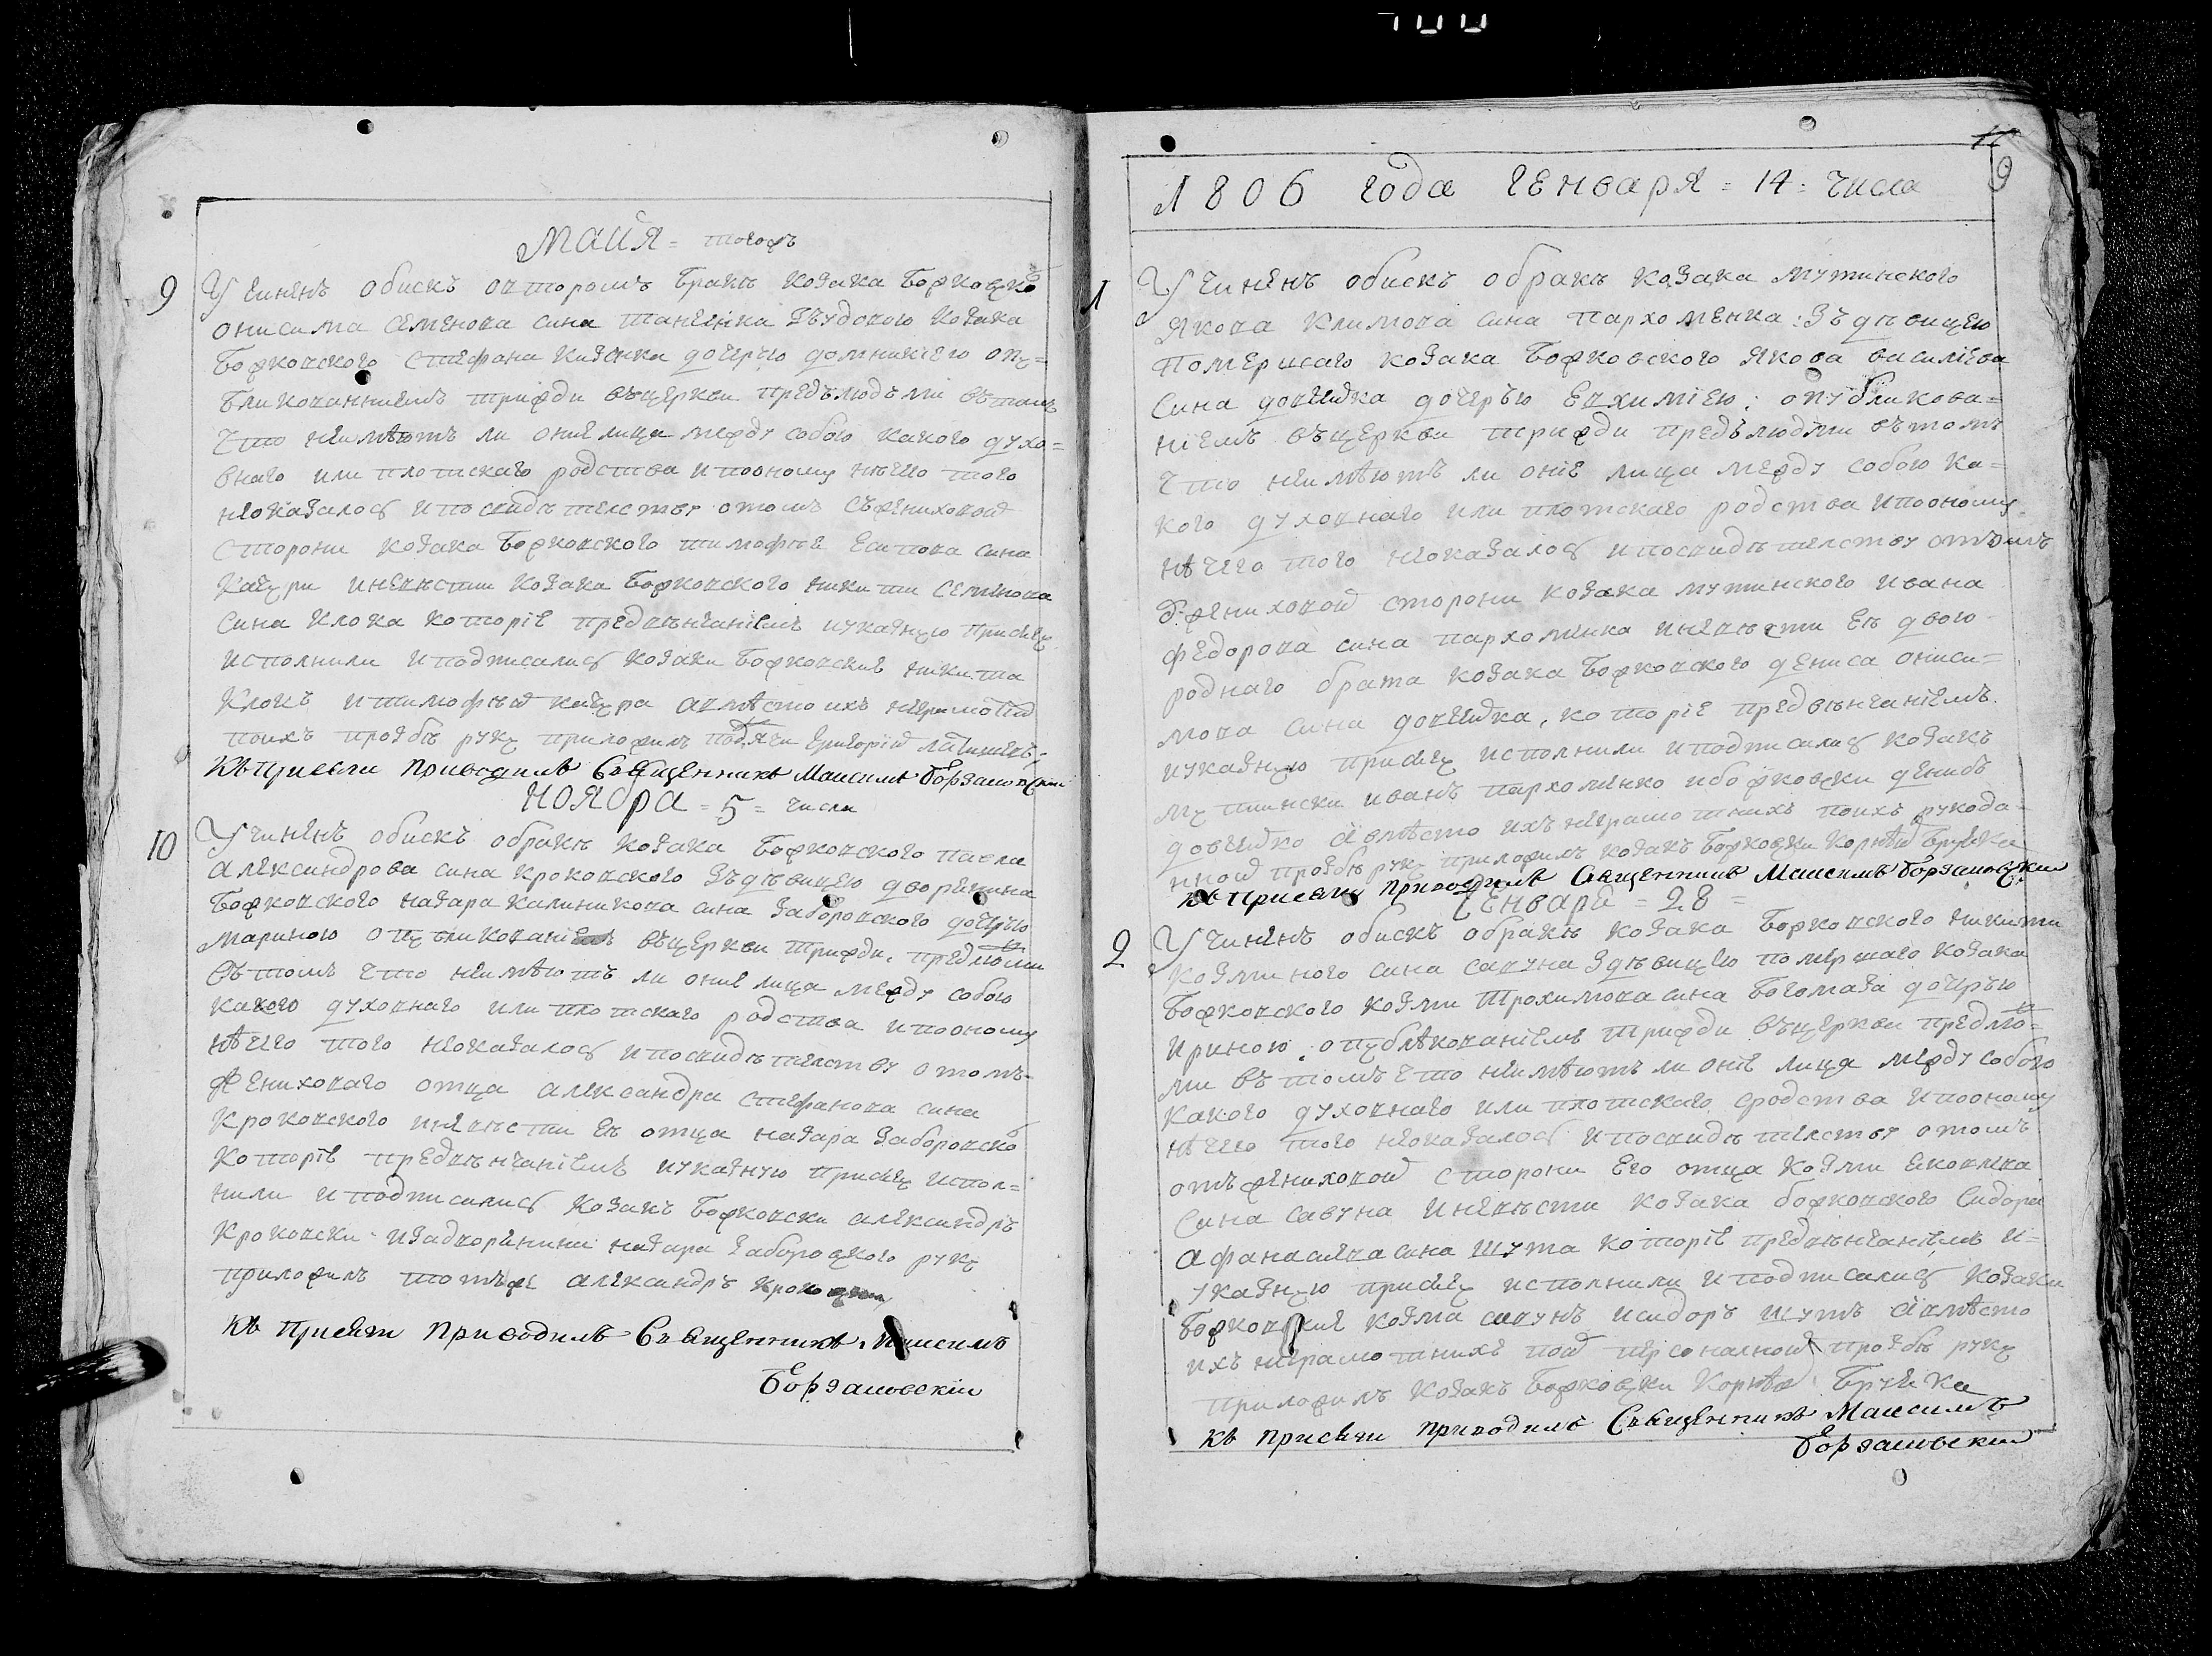 Майя = тогожъ
9 Учиненъ обискъ овторомъ бракѣ козака Боржовско
онисима семенова сина
Боржовского стефана дочерью
бликованниемъ трижди въцеркви предълюдъми вътомъ
Что неимѣютъ ли оние лица между собою какого духо=
внаго или плотскаго родства ипооному нѣчего того
неоказалос ипосвидѣтелству отомъ съжениховой
сторони козака Боржовского тимофѣя Есипова сина
Кацури иневѣсти козака Боржовского никити семенова
сина клока которіе предвѣнчаніемъ иуказную присягу
исполнили иподписалис козаки Боржовскиѣ никита
Клокъ итимофѣй кацура авмѣсто ихъ неграмотній
поихъ прозбѣ руку приложилъ подячи Григорій
Къ присяги приводилъ Священникъ Максимъ Борзаковскій
Ноября = 5 = числа
10 Учиненъ обискъ обракѣ козака Боржовского павла
Александрова сина кроковского зъдѣвицею дворенина
Боржовского назара калиникова сина заборовского дочерю
Мариною опубликованіемъ въцеркви трижди, предлюдми
вътомъ что неимѣютъ ли оние лица между собою
какого духовнаго или плотскаго родства ипооному
нѣчего того неоказалос ипосвидѣтелству отомъ
жениховаго отца александра стефанова сина
Кроковского иневѣсти Еѣ отца назара заборовско
которіе предвѣнчаніемъ иуказную присягу испол=
нили иподписалис козакъ Боржовски александръ
Кроковски изадворенина назара заборовского руку
приложилъ тотъже александръ кроковски
Къ присяги приводилъ Священникъ Максимъ
Борзаковскій
9
1806 года Генваря = 14 = числа
1 Учиненъ обискъ обракѣ козака мутинского
Якова климова сина пархоменка: зъдѣвицею
помершаго козака Боржовского якова василіева
сина довгидка дочерью Евхиміею: опубликова=
ніемъ въцеркви трижди предълюдми вътомъ
Что неимѣютъ ли оніе лица между собою ка=
кого духовнаго или плотскаго родства ипооному
нѣчего того неоказалос ипосвидѣтелству отомъ
жениховой сторони козака мутинского ивана
федорова сина пархоменка иневѣсти Еѣ двою
роднаго брата козака Боржовского дениса ониси=
мова сина довгидка, которіе предвѣнчаніемъ
иуказную присягу исполнили иподписалис козакъ
мутински иванъ пархоменко иборжовски денисъ
довгидко авмѣсто ихъ неграмотнихъ поихъ рукода=
нной прозбѣ руку приложилъ козакъ Боржовски Корнѣй
къ присяги приводилъ Священникъ Максимъ Борзаковскій
Генваря = 28 =
2 Учиненъ обискъ обракѣ козака Боржовского никити
Козминого сина савуна здѣвицею помершаго козака
Боржовского козми трохимова сина Богомаза дочерью
Ириною: опублѣкованіемъ трижди въцеркви предлюд=
ми вътомъ что неимѣютъ ли оніе лица между собою
какого духовнаго или плотскаго сродства ипооному
нѣчего того неоказалос ипосвидѣтелству отомъ
отъжениховой сторони Его отца козми яковлева
сина савуна иневѣсти козака боржовского Сидора
афанасиева сина шута которіе предвѣнчаніемъ и=
указную присягу исполнили иподписалис козаки
Боржовскиѣ козма савунъ исидоръ шутъ авмѣсто
ихъ неграмотнихъ поих персоналной прозбѣ руку
приложилъ козакъ Боржовски Корнѣй
къ присяги приводилъ Священникъ Максимъ
Борзаковскій